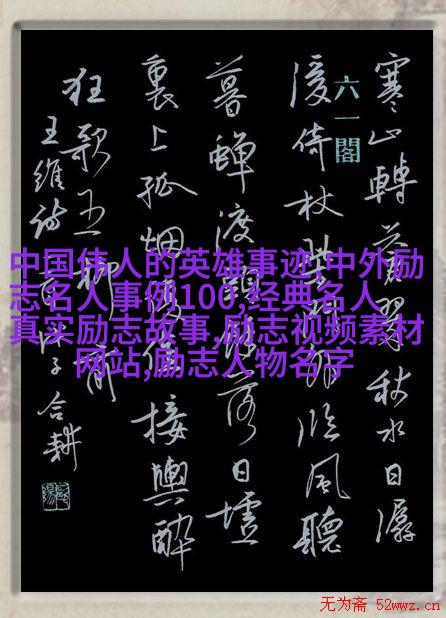 寒山轉蒼翠秋水日潺
湲倚杖柴門外临風聽
暮蟬渡頭餘落日墟
裏上孤烟復值接輿醉
狂歌五柳前
王維诗
合耕
六一閣
中国伟人的英雄事迹,中外励
志名人事例100,经典名人
真实励志故事,励志视频素材
网站,励志人物名字
无为斋 52wwz.cn